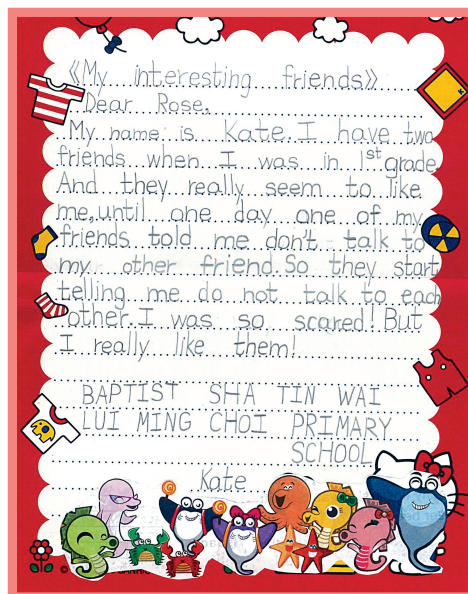 《My interesting friends》
Dear Rose,
My name is Kate. I have two
friends when I was in 1st grade
And they really seem to like
me, until one day one of my
friends told me don't talk to
my other friend. So they start
telling me do not talk to each
other. I was so scared! But
I really like them!
BAPTIST SHA TIN WAI
LUI MING CHOI PRIMARY
SCHOOL
Kate